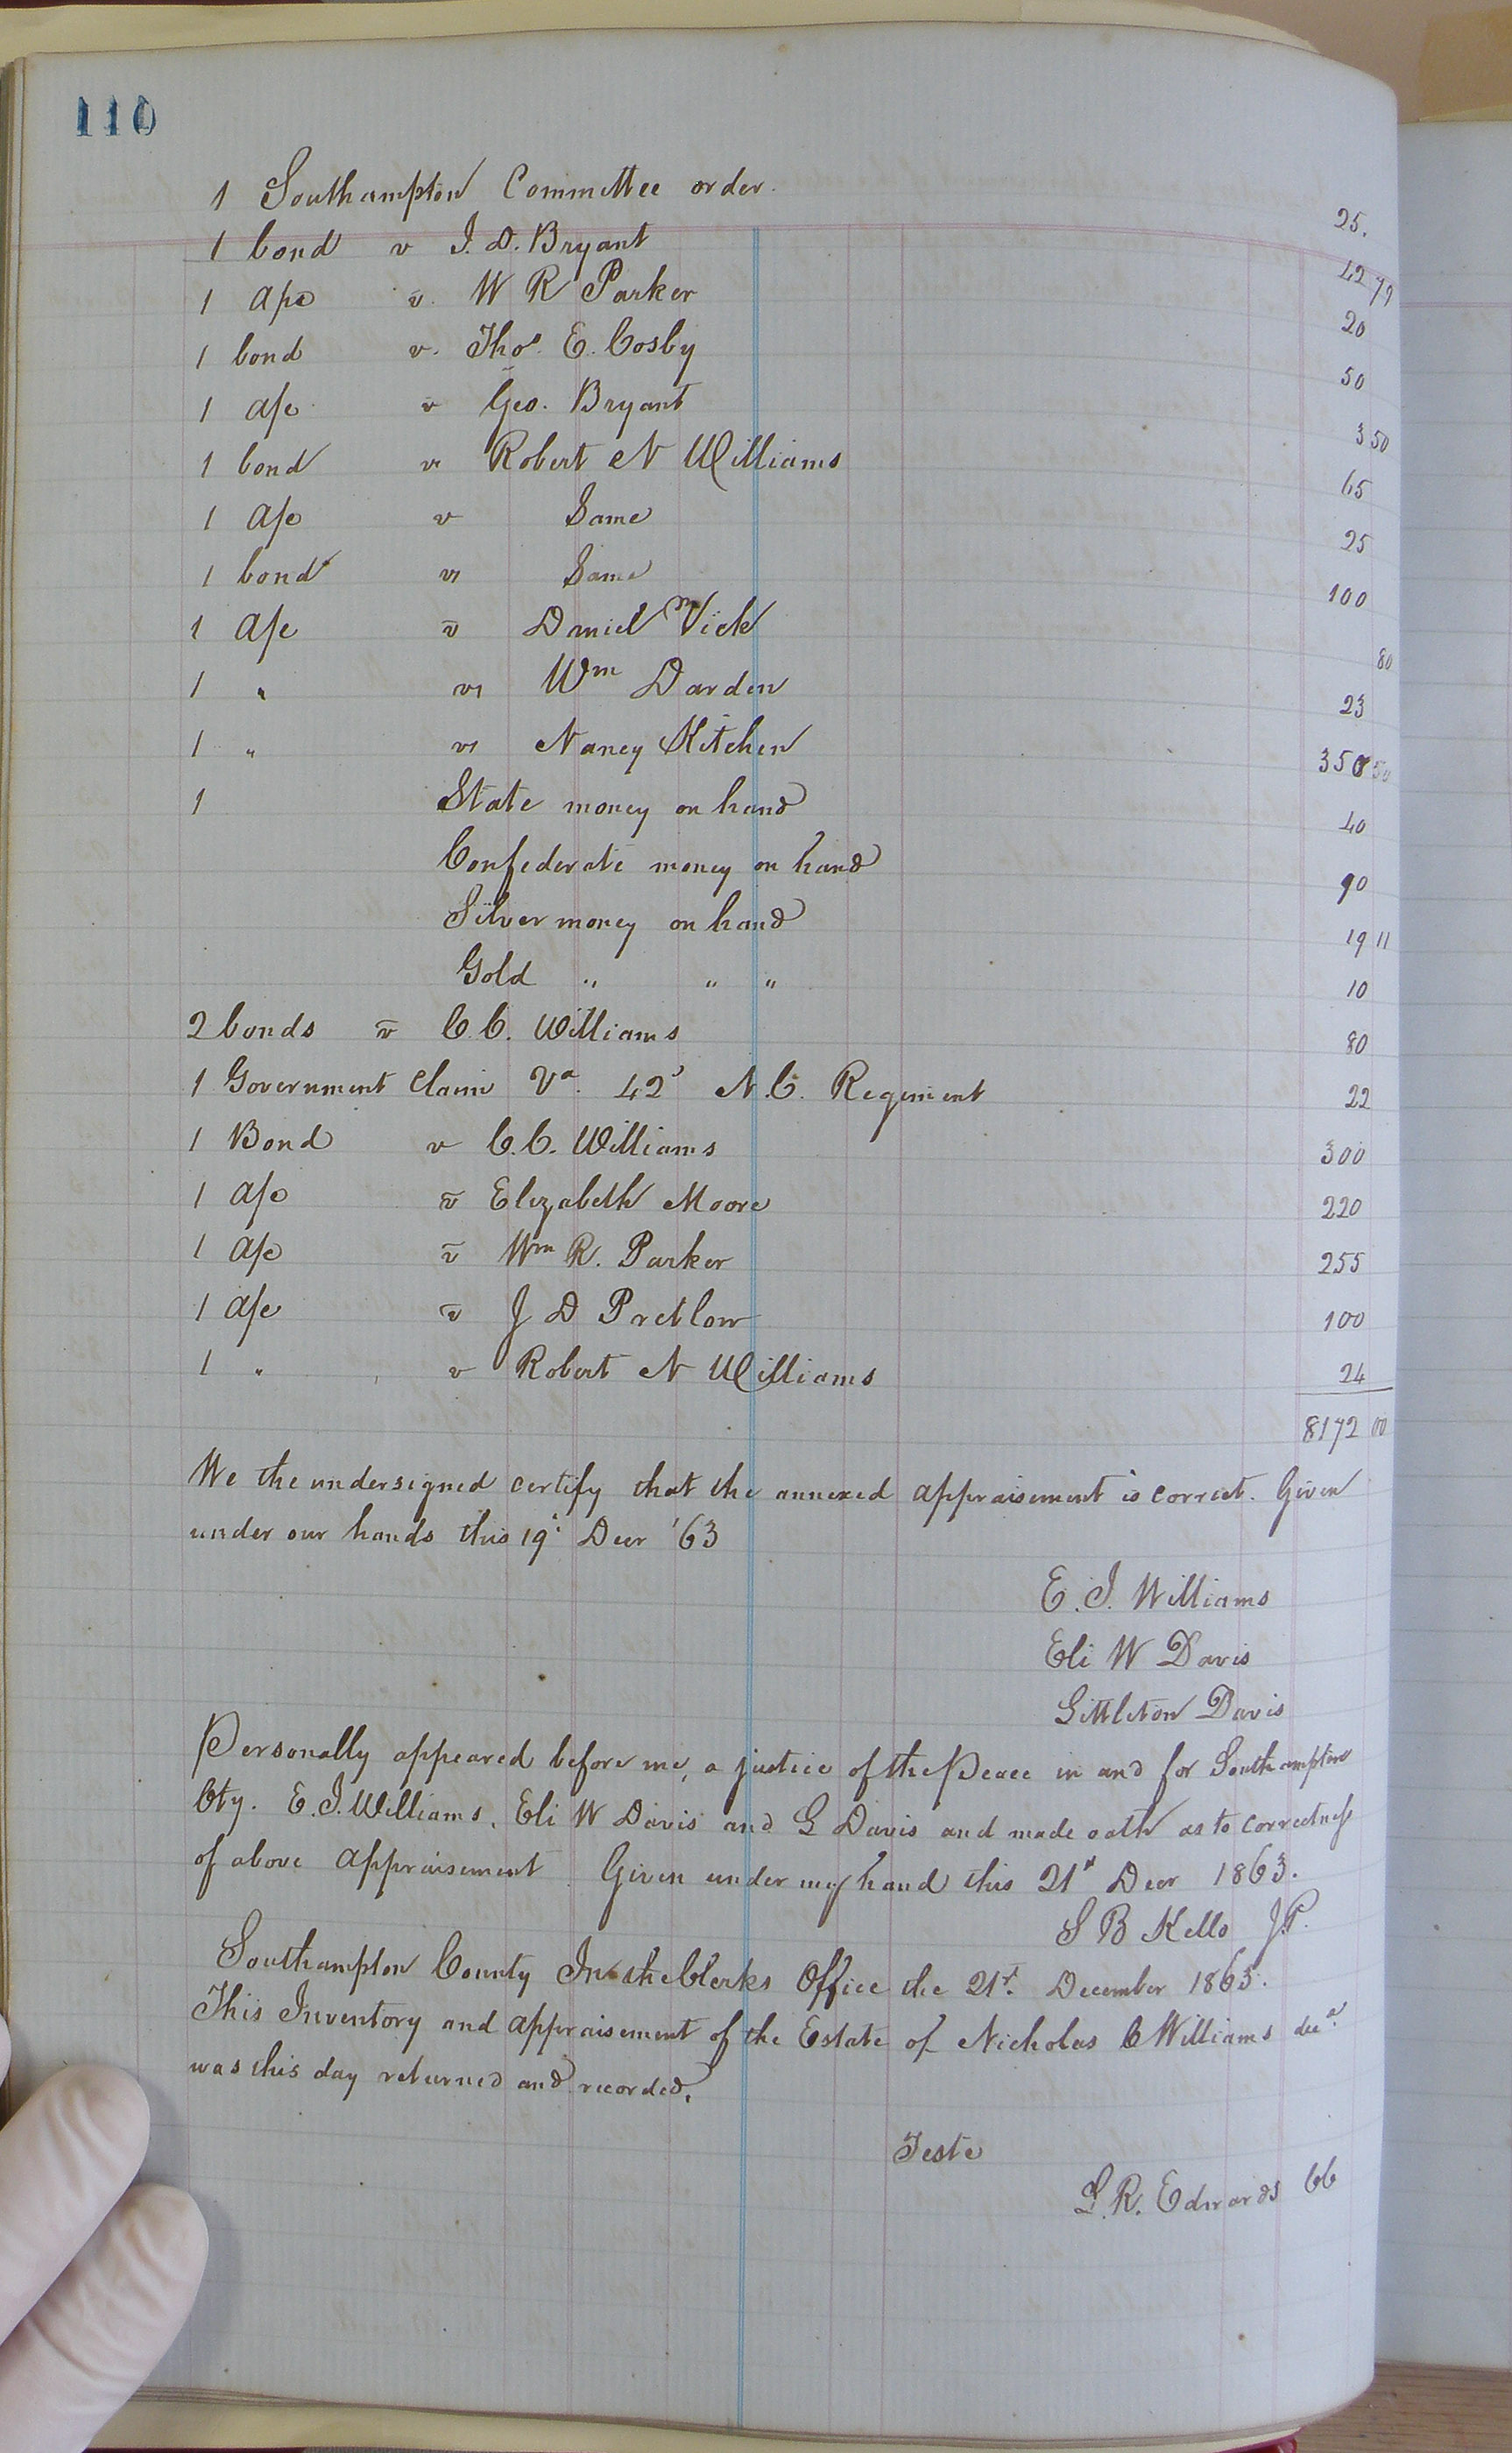 110
1 Southampton Committee order. 25.
1 bond v J. D. Bryant 42 79
1 a/c v. W R Parker 20
1 bond v. Thos. E. Cosby 50
1 a/c v Geo. Bryant 3 50
1 bond vs Robert N Williams 65
1 a/c v Same 25
1 bond vs Same 100
1 a/c v Daniel Vick 80
1 " vs Wm Darden 23
1 " vs Nancy Kitchen 350 50
1 State money on hand 40
Confederate money on hand 90
Silver money on hand 19 11
Gold " " " 10
2 bonds v C. C. Williams 80
1 Government Claim Va. 42d N. C. Regiment 22
1 Bond v C. C. Williams 300
1 a/c v Elizabeth Moore 220
1 a/c v Wm R. Parker 255
1 a/c v J D Pretlow 100
1 " v Robert N Williams 24
8172 00
We the undersigned certify that the annexed appraisement is correct. Given
under our hands this 19th Decr '63
E. J. Williams
Eli W Davis
Littleton Davis
Personally appeared before me, a justice of the Peace in and for Southampton
Cty. E. J. Williams, Eli W Davis and L Davis and made oath as to correctness
of above appraisement Given under my hand this 21st Decr 1863.
S B Kello J.P.
Southampton County In the Clerks Office the 21st. December 1863.
This Inventory and appraisement of the Estate of Nicholas C Williams decd.
was this day returned and recorded,
Teste
L. R. Edwards CC